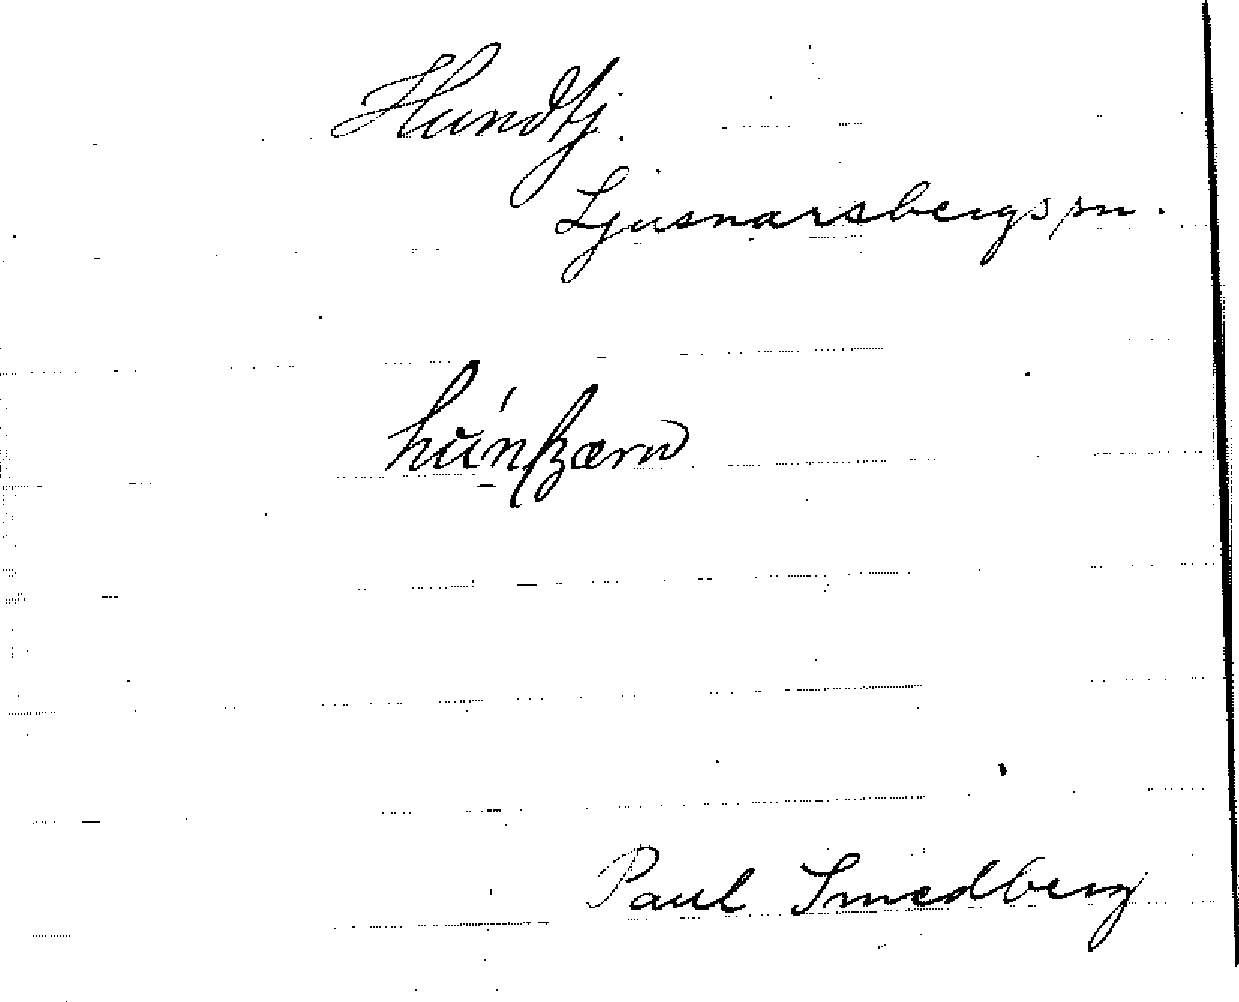 Hundtj.
Ljusnarsbergs sn.
Paul Smedberg